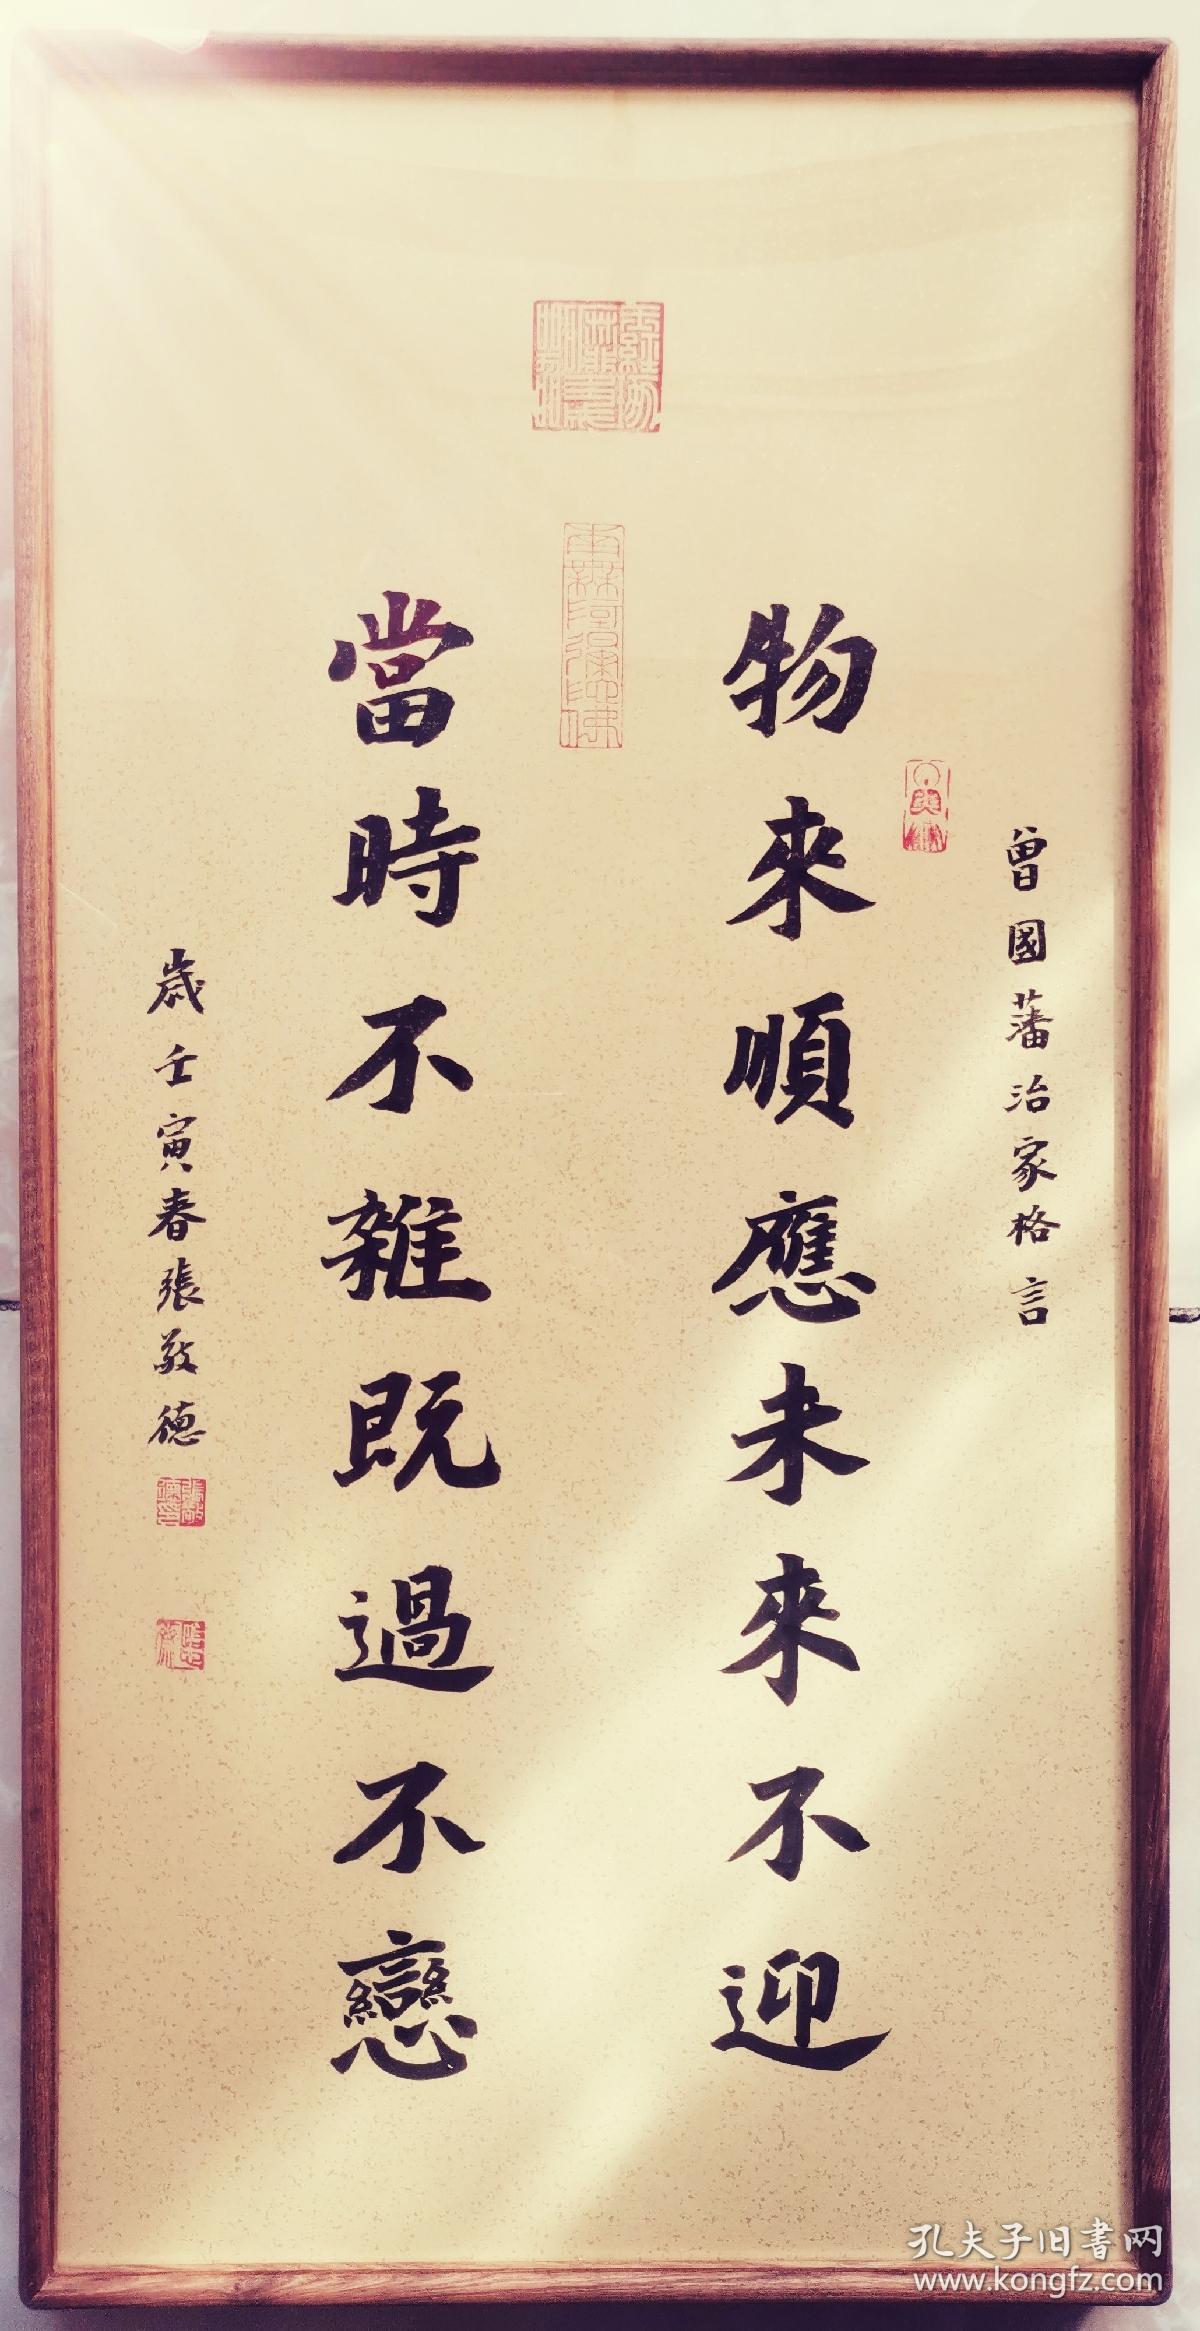 曾國藩治家格言
物來順應未來不迎
當時不雜既過不戀
歲壬寅春張敬德
南無阿彌陀佛
孔夫子旧书网
www.kongfz.com